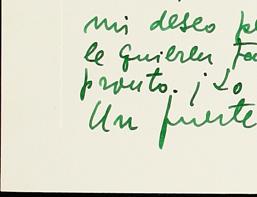 mi deseo pe
le quieren Fa
pronto. ¡Lo
Un fuerte